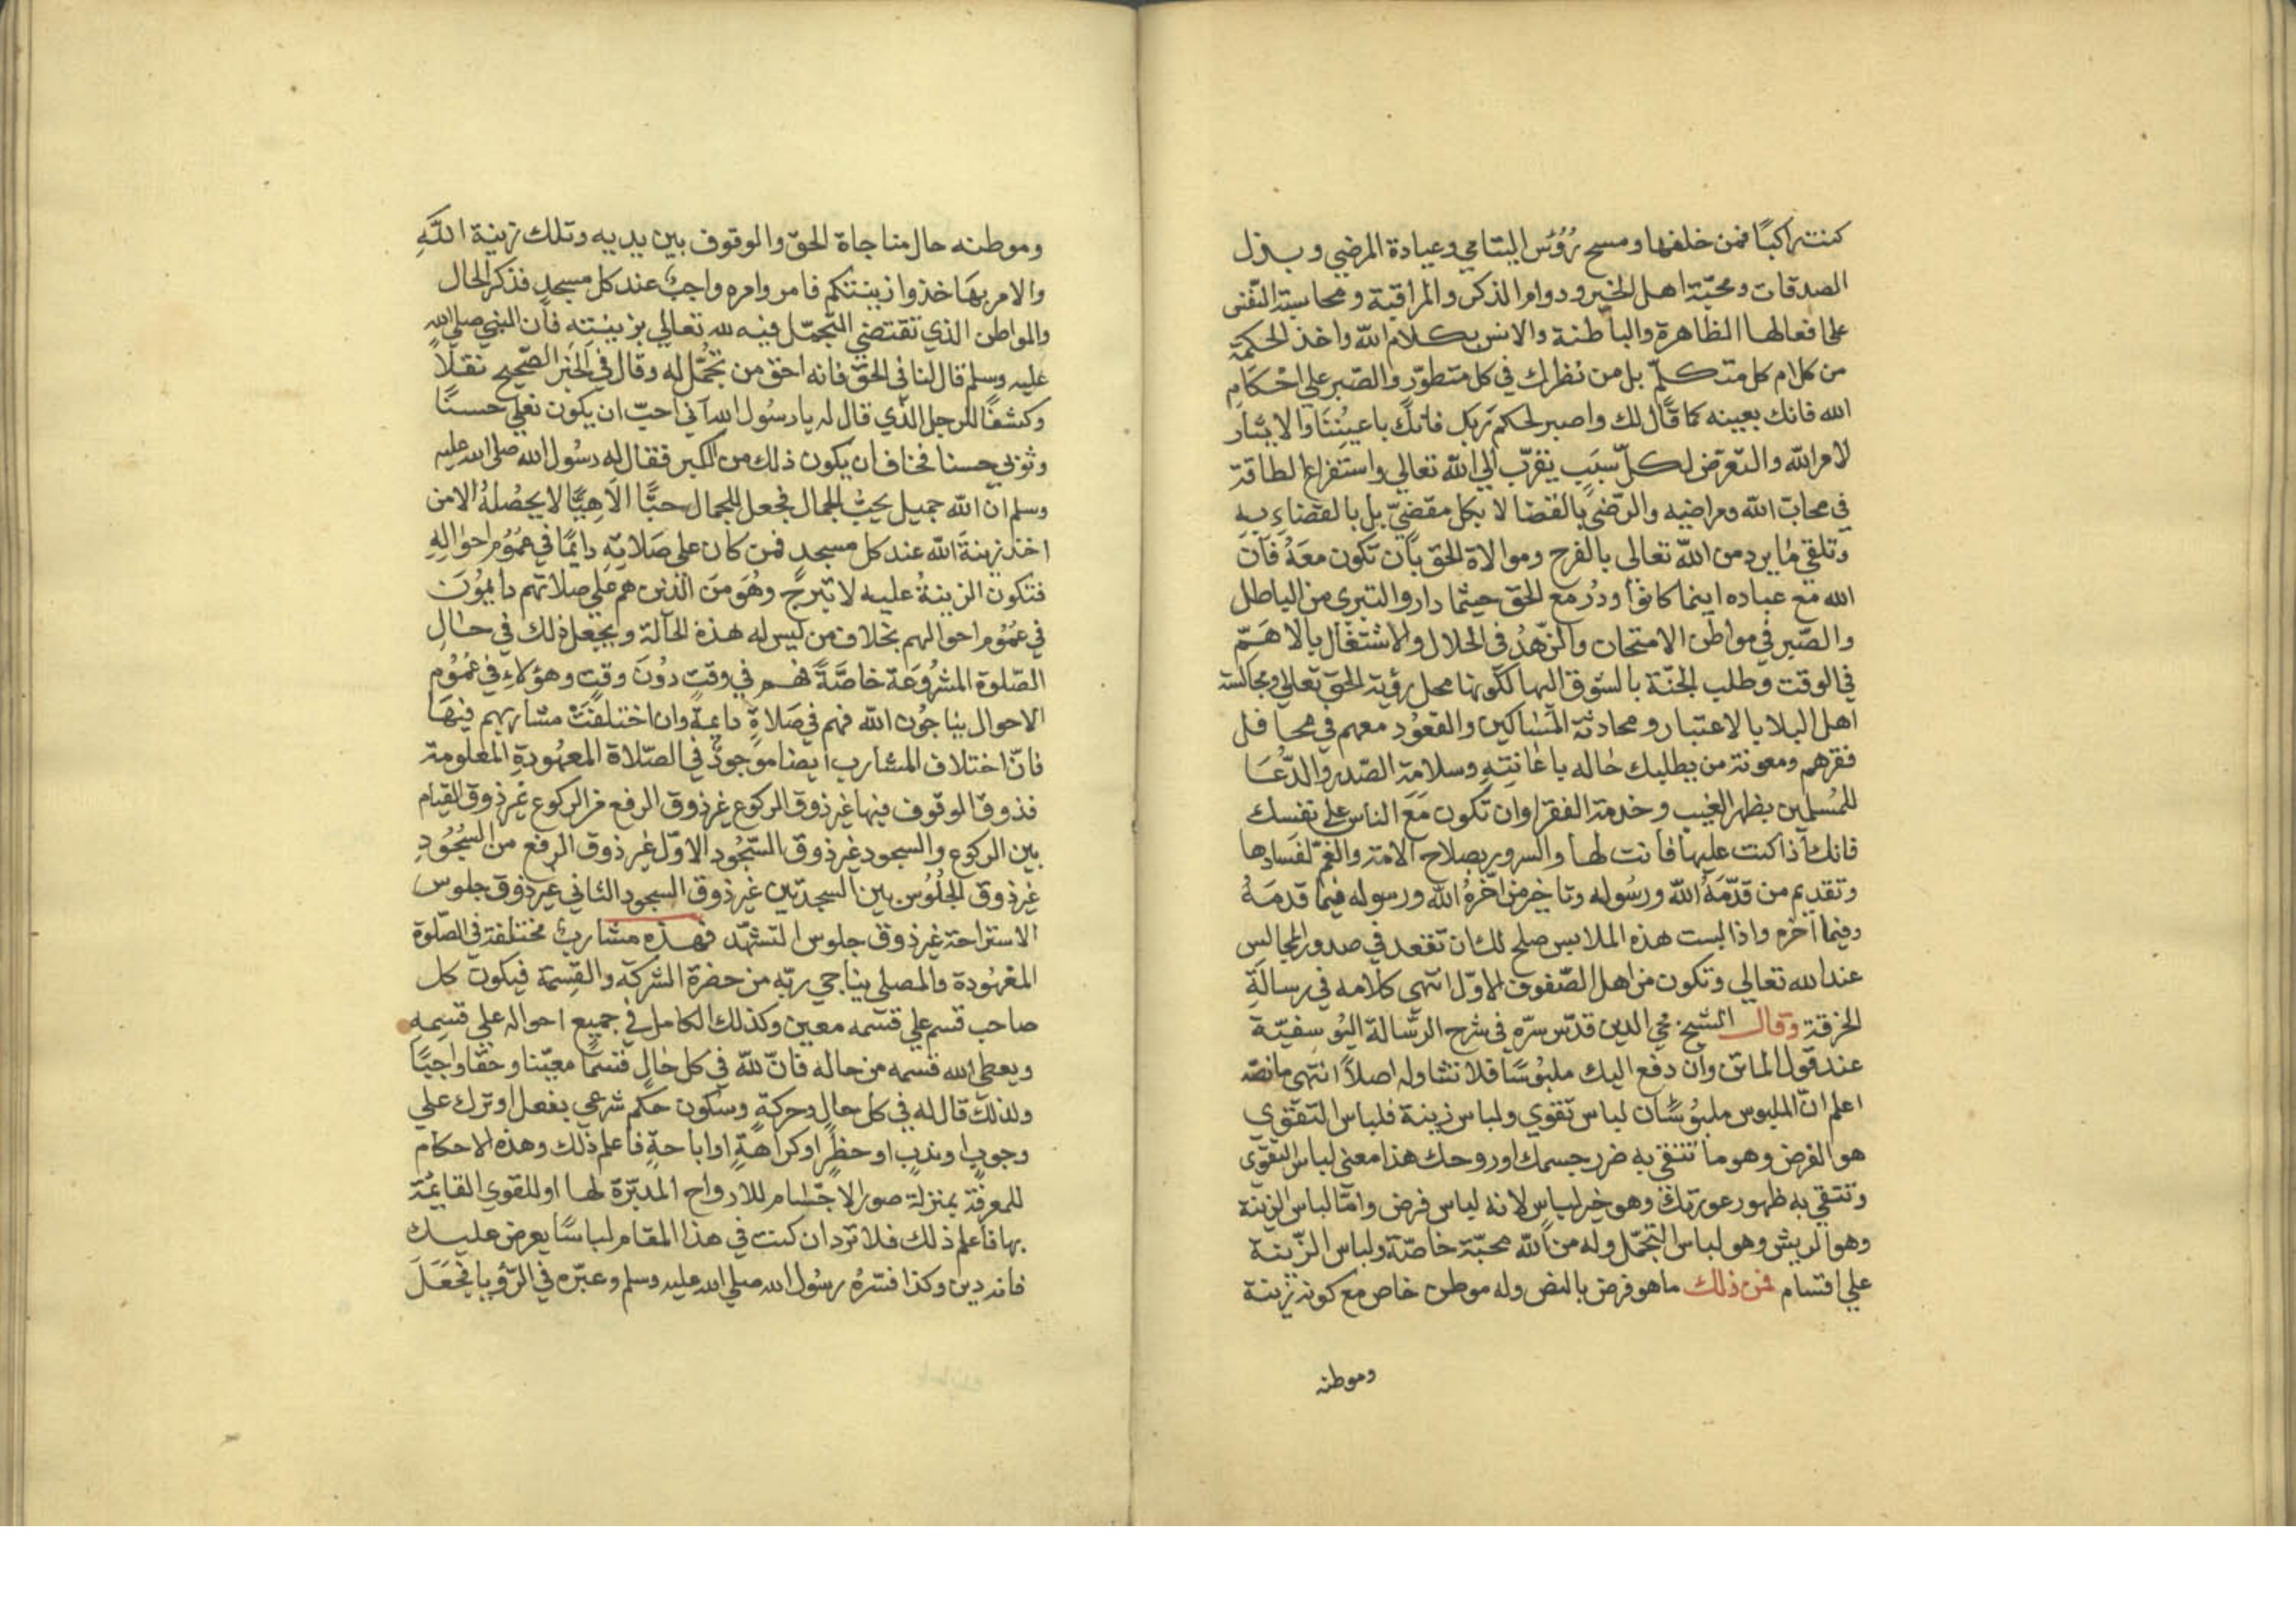 كنت راكبًا فمن خلفها ومسح رُؤُس اليتامي وعيادة المرضي وبذل
الصدقات ومحبّة اهل الخير ودوام الذكر والمراقبة ومحاسبة النّفس
على افعالها الظاهرة والباطنة والانس بكلام الله واخذ الحكمة
من كلام كل متكلّم بل من نظرك في كل متطوّر والصّبر علي احْكَامِ
الله فانك بعينه كما قال لك واصبر لحكم رَبّك فانّك باعيُنِنَا والايثار
لامر الله والتعرّض لكلّ سبَبٍ يقرّب الي الله تعالي واستفراغ الطاقة
في محابّ الله ومراضيه والرّضي بالقضا لا بكل مقضيّ بل بالقضاءِ بهِ
وتلقي مُا يرد من الله تعالى بالفرح وموالاة الحق بان تكون معَهُ فان
الله مع عباده اينما كانوا ودُر مع الحق حيثما دار والتبري من الباطل
والصّبر في مواطن الامتحان والزّهدُ في الحلال والاشتغال بالاهَمّ
في الوقت وطلب الجنّة بالشوق اليها لكونها محل رؤية الحق تعالي ومجالسة
اهل البلا بالاعتبار ومحادثة المسَاكين والقعوُد معهم في محافل
فقرهم ومعونة من يطلبك حاله باعانتِهِ وسلامة الصّدر والدّعَا
للمُسلمين بظهر الغيب وخدمة الفقرا وان تكون مَعَ الناس على نفسك
فانك اذا كنت عليها فانت لها والسرور بصلاح الامّة والغمّ لفسادها
وتقديم من قدّمَهُ الله ورسُوله وتاخير من اخّرهُ الله ورسوله فيما قدمَهُ
وفيما اخّره واذا لبست هذه الملابس صلح لك ان تقعد في صدور المجالس
عند الله تعالي وتكون من اهل الصّفوف الاوّل انتهى كلامه في رسالَةِ
الخرقة وقال الشيخ محي الدين قدّس سرّه في شرح الرسَالة اليُوسفيّة
عند قول الماتن وان دفع اليك ملبُوسًا فلا تشاوله اصلاً انتهى ما نصّه
اعلم انّ الملبوس ملبُوسَان لباس تقوي ولباس زينة فلباس التقوي
هو الفرض وهو ما تتقي به ضرر جسمك او روحك هذا معني لباس التقوى
وتتقي به ظهور عورتك وهو خير لباس لانه لباس فرض وامّا لباس الزينة
وهو الريش وهو لباس التجمّل وله من الله محبّة خاصّة ولباس الزّينة
علي اقسام فمن ذلك ما هو فرض بالنص وله موطن خاص مع كونه زينة
وموطنه
وموطنه حال مناجاة الحقّ والوقوف بين يديه وتلك زينة اللهِ
والامر بهَا خذوا زينتكم فامر وامره واجبٌ عند كل مسجدٍ فذكر الحال
والمواطن الذي تقتضي التّجمّل فيه لله تعالي بزينتِهِ فان النبي صلى الله
عليه وسلم قال لنا في الحقّ فانه احق من تُجُمِّلَ له وقال في الخبر الصّحيح نقلاً
وكشفًا للرجل الذّي قال له يا رسُول الله انّي احبّ ان يكون نعلي حسنًا
وثوبي حسنا فخاف ان يكون ذلك من الكبر فقال له رسُول الله صلى الله عليه
وسلم ان الله جميل يحبّ الجمال فجعل للجمال حبًّا الاهِيًّا لا يحصُلهُ الا من
اخذ زينةَ الله عند كل مسجدٍ فمن كان علي صَلاتِهِ دايمًا في عمُوُم احوالِهِ
فتكون الزينةُ عليه لا تبرح وهُوَ منَ الذين هم علي صلاتهم دايموُن
في عمُوُم احوالهم بخلاف من ليس له هذهِ الحالَة ويجعل ذلك في حالِ
الصّلوة المشرُوعَة خاصَّةً فهم في وقتٍ دوُنَ وقتٍ وهؤلاءِ في عمُوُمِ
الاحوال يناجُون الله فهم في صَلاةٍ دايمةٍ وان اختلفَتْ مشاربهم فيها
فانّ اختلاف المشارب ايضا موجودٌ في الصّلاة المعهُودةِ المعلومة
فذوق الوقوف فيها غير ذوق الركوع غير ذوق الرفع من الركوع غير ذوق القيام
بين الركوع والسجود غير ذوق السّجُود الاوّل غير ذوق الرفع من السُجُودِ
غير ذوق الجلُوُس بين السجدتين غير ذوق السجود الثاني غير ذوق جلوس
الاستراحة غير ذوق جلوس التشهّد فهذه مشاربُ مختلفة في الصّلوة
المعهُودة والمصلي يناجي ربّه من حضرة الشركة والقِسمة فيكون كل
صاحب قسم علي قسمه معين وكذلك الكامل في جميع احواله علي قسمِهِ
ويعطي الله قسمه من حاله فانّ للهّ في كل حَالٍ قسمًا معيّنا وحقّا واجبًا
ولذلك قال له في كل حالٍ وحركةٍ وسكون حكم شرعي بفعل او ترك علي
وجوبٍ او ندبٍ او حظرٍ او كراهةٍ او اباحةٍ فاعلم ذلك وهذه الاحكام
للمعرفة بمنزلة صور الاجسَام للارواح المدبّرة لها او للقوي القايمَة
بها فاعلم ذلك فلا تردان كنت في هذا المقام لباسًا يعرض عليك
فانه دين وكذا فسّرهُ رسُول الله صلي الله عليه وسلم وعبّره في الرّؤيا فجَعَلَ